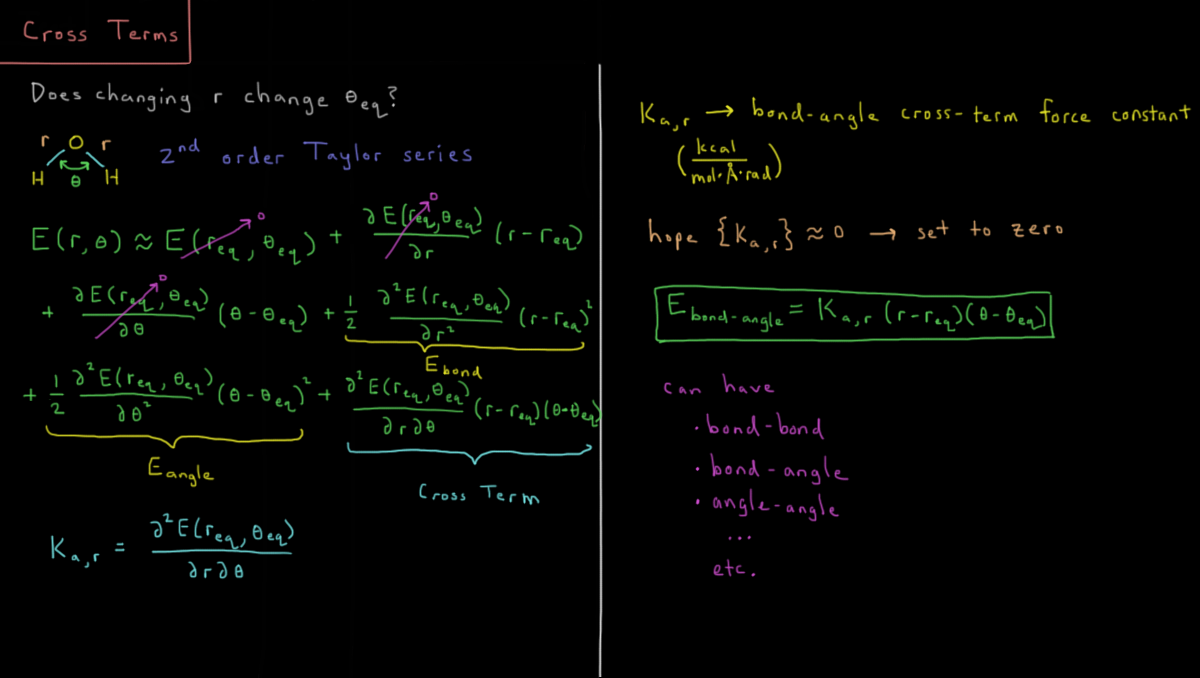 Cross Terms
Does changing r change θeq?
r O r
H θ H
2nd order Taylor series
E(r, θ) ≈ E(req, θeq) → 0 + ∂E(req, θeq)/∂r → 0 (r - req)
+ ∂E(req, θeq)/∂θ → 0 (θ - θeq) + 1/2 ∂²E(req, θeq)/∂r² (r - req)²
Ebond
+ 1/2 ∂²E(req, θeq)/∂θ² (θ - θeq)² + ∂²E(req, θeq)/∂r∂θ (r - req)(θ - θeq)
Eangle
Cross Term
Ka,r = ∂²E(req, θeq)/∂r∂θ
Ka,r → bond-angle cross-term force constant
(kcal/mol·Å·rad)
hope {Ka,r} ≈ 0 → set to zero
Ebond-angle = Ka,r (r - req)(θ - θeq)
can have
· bond-bond
· bond-angle
· angle-angle
...
etc.